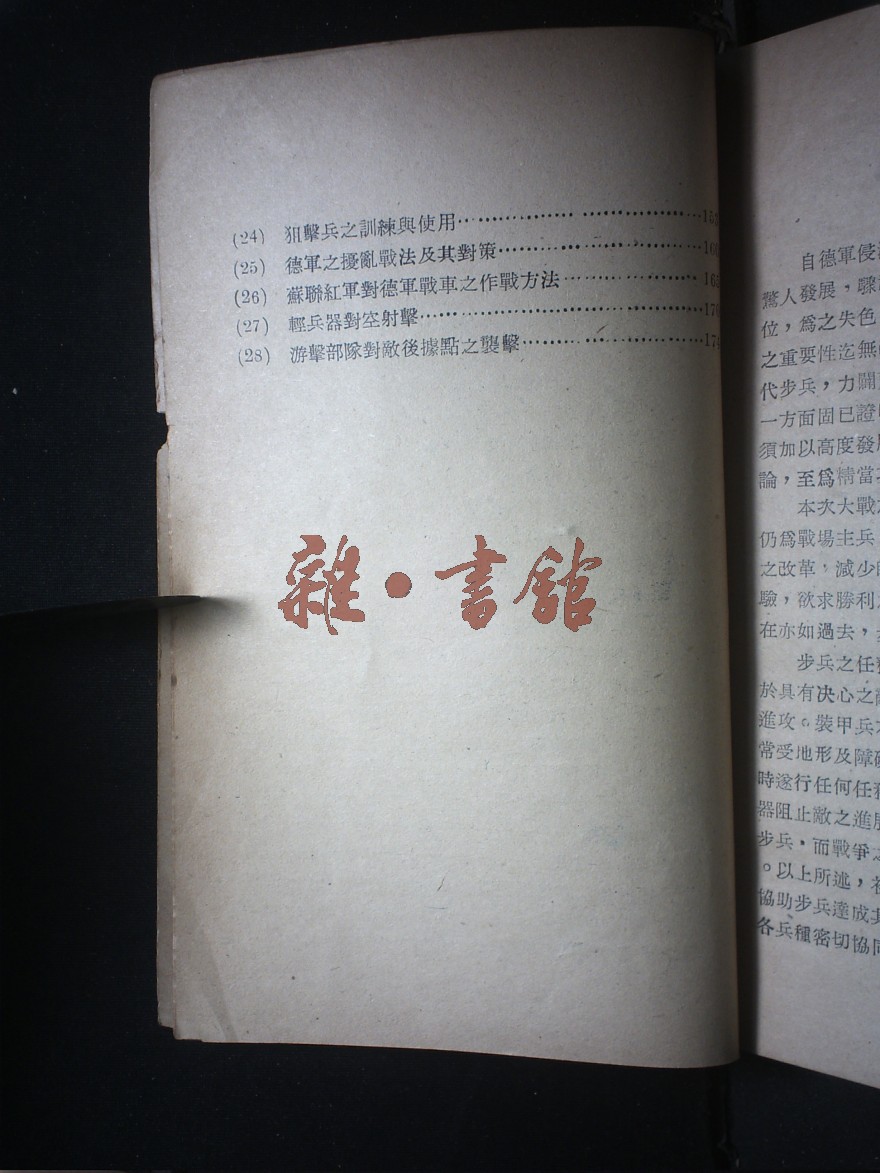 (24) 狙擊兵之訓練與使用
(25) 德軍之擾亂戰法及其對策
(26) 蘇聯紅軍對德軍戰車之作戰方法
(27) 輕兵器對空射擊
(28) 游擊部隊對敵後據點之襲擊
雜・書館
自德軍侵
驚人發展，
位，爲之失色
之重要性迄無
代步兵，力闢
一方面固已證
須加以高度發
論，至爲精當
本次大戰
仍爲戰場主兵
之改革，減少
驗，欲求勝利
在亦如過去，
步兵之任
於具有決心之
進攻。裝甲兵
常受地形及障
時遂行任何任
器阻止敵之進
步兵，而戰爭
。以上所述，
協助步兵達成
各兵種密切協同